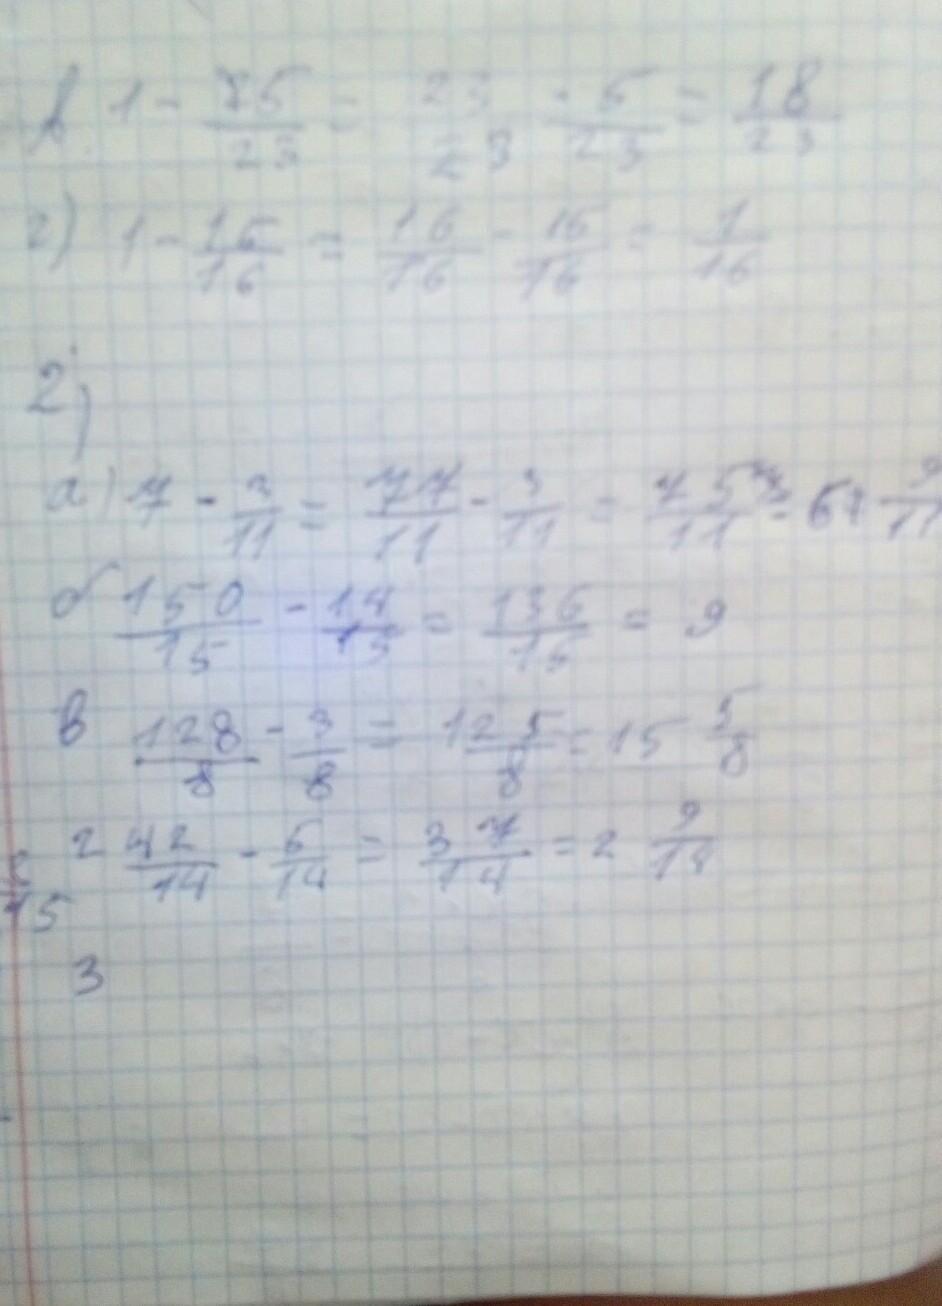 в. 1 - 15/23 = 23/23 - 5/23 = 18/23
г) 1 - 15/16 = 16/16 - 15/16 = 1/16
2)
а) 7 - 3/11 = 77/11 - 3/11 = 11 = 9/11
б 150/15 - 14/15 = 136/15 = 9
в 128/8 - 3/8 = 125/8 = 15 5/8
г 42/14 - 5/14 = 37/14 = 2 9/14
15
3